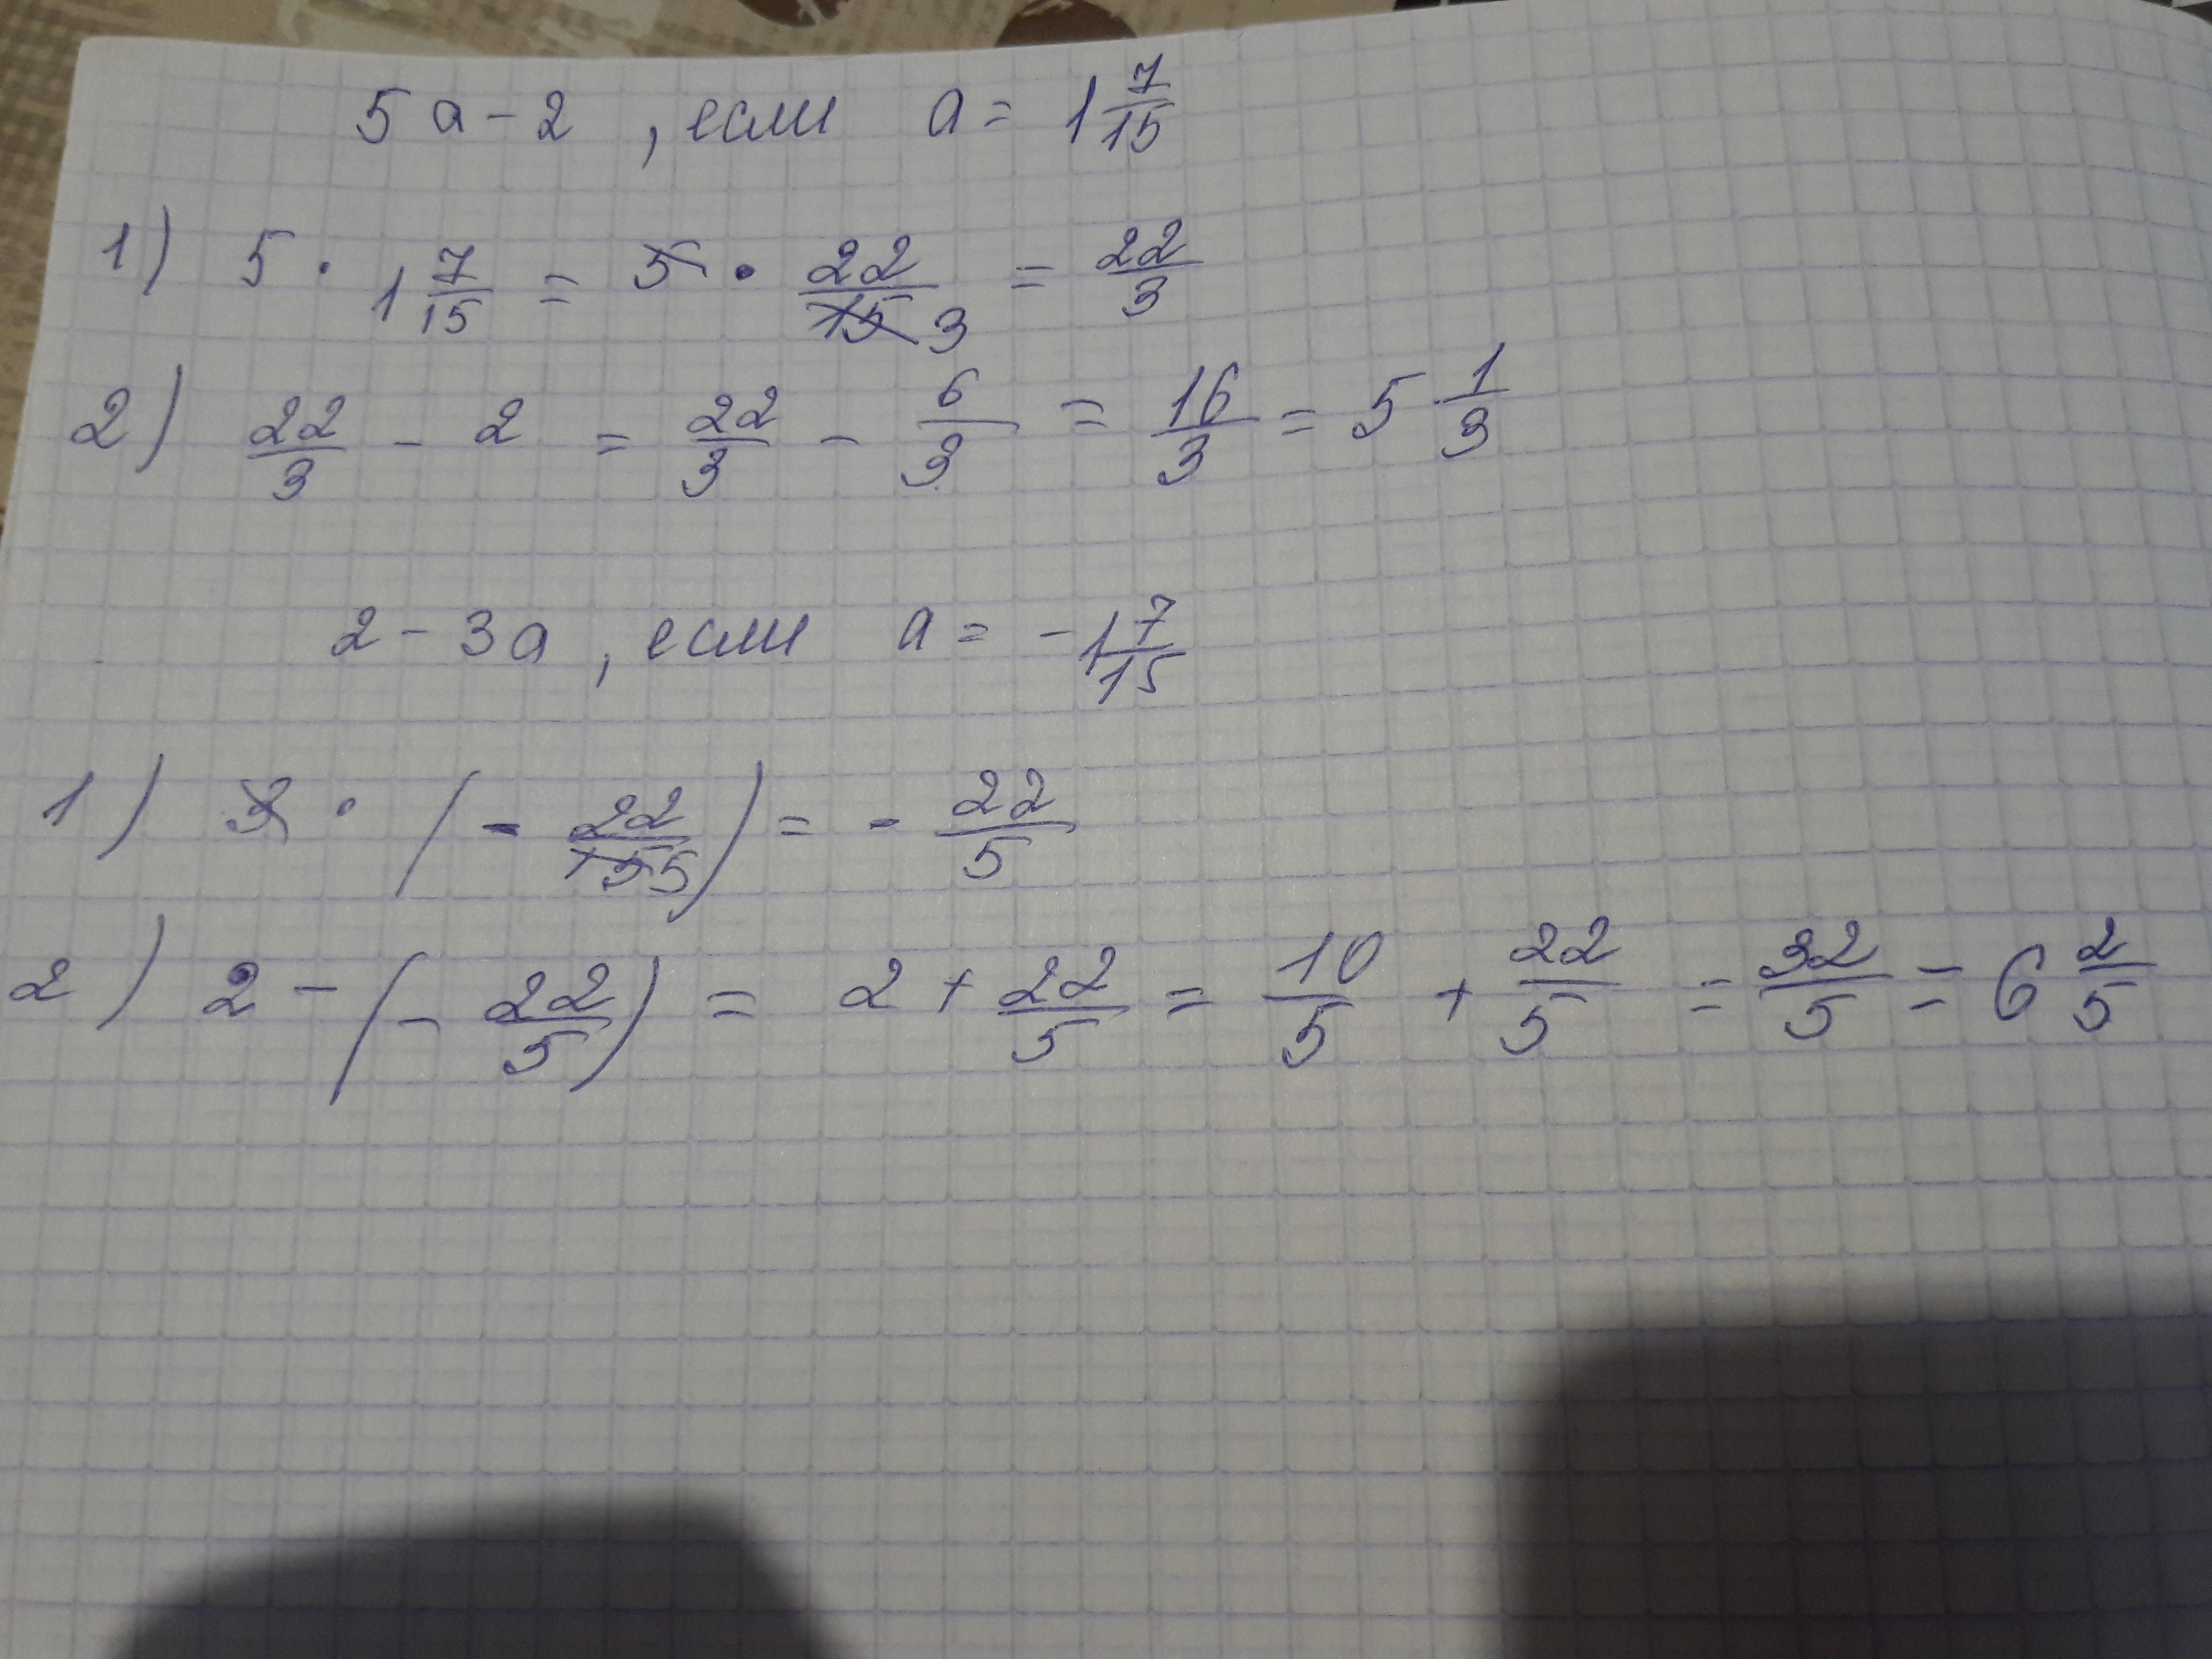 5a - 2 , если a = 1 7/15
1) 5 · 1 7/15 = 5 · 22/15 3 = 22/3
2) 22/3 - 2 = 22/3 - 6/3 = 16/3 = 5 1/3
2 - 3a , если a = -1 7/15
1) 3 · (- 22/15 5) = - 22/5
2) 2 - (- 22/5) = 2 + 22/5 = 10/5 + 22/5 = 32/5 = 6 2/5